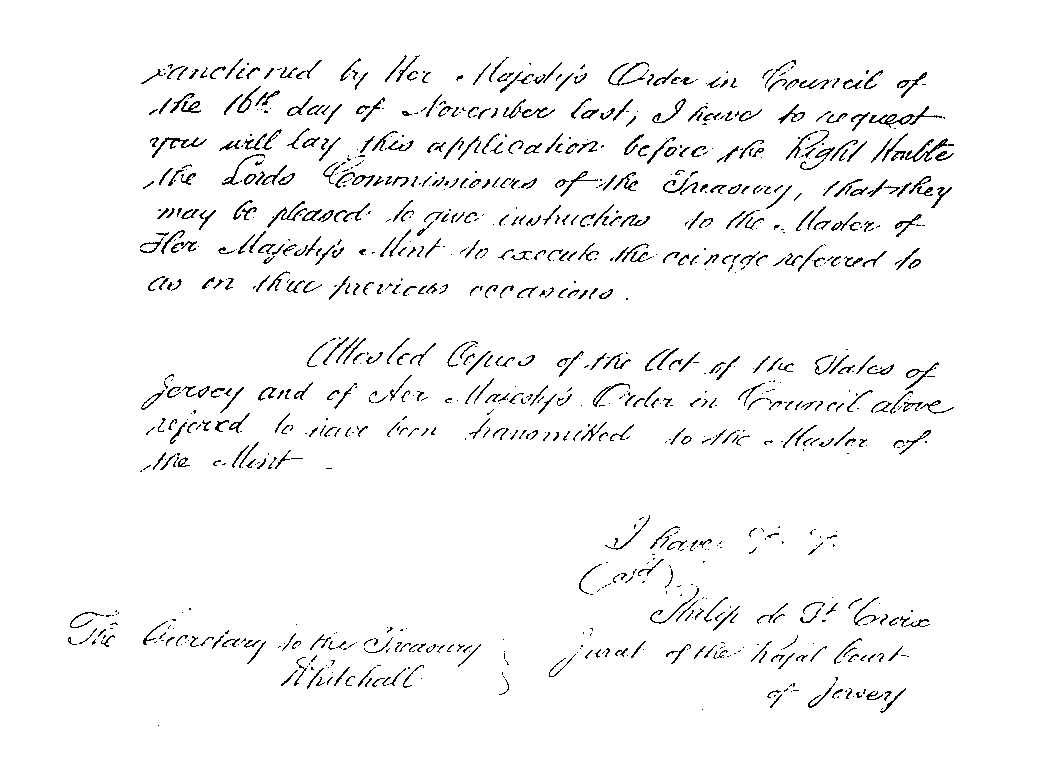 sanctioned by Her Majesty's Order in Council of
the 16th day of November last, I have to request
you will lay this application before the Right Honble
the Lords Commissioners of the Treasury, that they
may be pleased to give instructions to the Master of
Her Majesty's Mint to execute the coinage referred to
as on three previous occasions.
Attested Copies of the Act of the States of
Jersey and of Her Majesty's Order in Council above
referred to have been transmitted to the Master of
the Mint
I have
Philip de St Croix
The Secretary to the Treasury
Jurat of the Royal Court
Whitehall
of Jersey